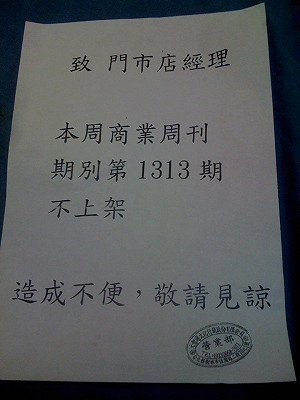 致 門市店經理
本周商業周刊
期別第1313期
不上架
造成不便，敬請見諒
營業部